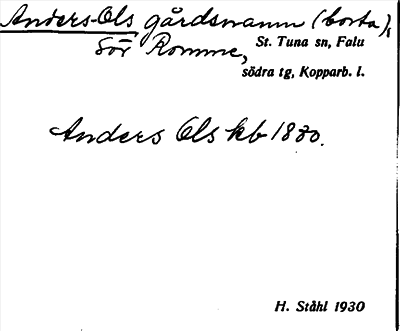 Anders-Ols gårdsnamn (borta),
Sör Romme, St. Tuna sn, Falu
södra tg, Kopparb. l.
Anders Ols kb 1880.
H. Ståhl 1930